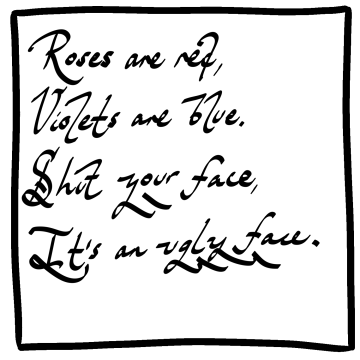 Roses are red,
Violets are blue.
Shut your face,
It's an ugly face.